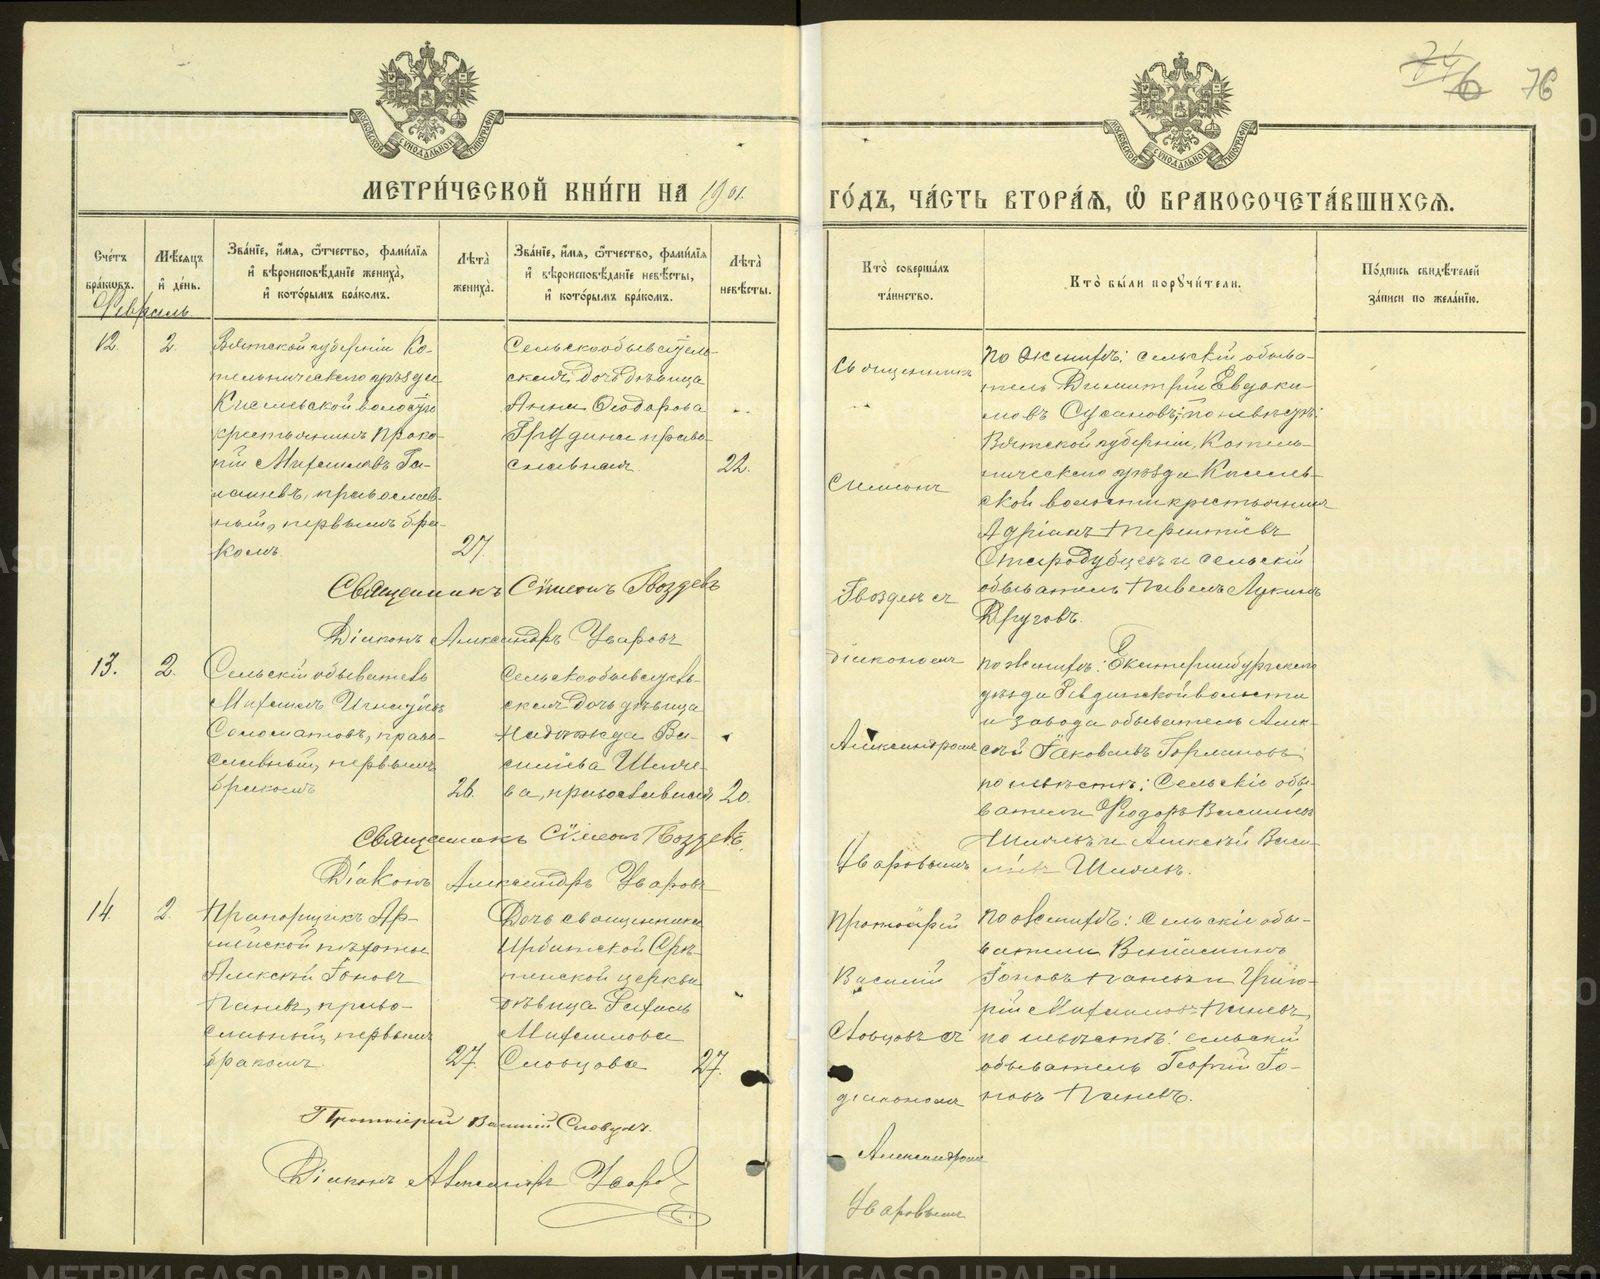 МОСКОВСКОЙ СѴНОДАЛЬНОЙ ТИПОГРАФІИ
МОСКОВСКОЙ СѴНОДАЛЬНОЙ ТИПОГРАФІИ
76
МЕТРИ́ЧЕСКОЙ КНИ́ГИ НА 1901.
ГО́ДЪ, ЧА́СТЬ ВТОРА́Я, Ѡ БРАКОСОЧЕТА́ВШИХСЯ.
Сче́тъ бра́ковъ.
Мѣ́сяцъ и де́нь.
Зва́нїе, и́мя, ѻ҆́тчество, фами́лїя и вѣроисповѣ́данїе жениха̀, и кото́рымъ бра́комъ.
Лѣта̀ жениха̀.
Зва́нїе, и́мя, ѻ҆́тчество, фами́лїя и вѣроисповѣ́данїе невѣ́сты, и кото́рымъ бра́комъ.
Лѣта̀ невѣ́сты.
Кто̀ соверша́лъ та́инство.
Кто̀ бы́ли порꙋчи́тели.
По́дпись свидѣ́телей за́писи по жела́нїю.
Февраль
12.
2.
Вятской губерніи Ко-
тельническаго уѣзда
Кисельской волости
крестьянинъ Проко-
пій Михаиловъ
православ-
ный, первымъ бра-
комъ.
27.
Сельскообывательская
дочь дѣвица
Анна Ѳеодорова
Грудина право-
славная.
22.
Священникъ
Симеонъ
Гвоздевъ съ
діакономъ
Александромъ
Уваровымъ
По женихѣ: сельскій обыва-
тель Димитрій Евдоки-
мовъ Сусановъ; по невѣстѣ:
Вятской губерніи, Котель-
ническаго уѣзда Кисель-
ской волости крестьянинъ
Адріанъ Терентіевъ
Стародубцевъ и сельскій
обыватель Павелъ Лукинъ
Друговъ.
Священникъ Симеонъ Гвоздевъ
Діаконъ Александръ Уваровъ
13.
2.
Сельскій обыватель
Михаилъ Игнатіевъ
Соломатовъ, право-
славный, первымъ
бракомъ
26.
Сельскообыватель-
ская дочь дѣвица
Надежда Ва-
силіева Шиле-
ва, православная
20.
по женихѣ: Екатеринбургскаго
уѣзда Ревдинской волости
и завода обыватель Алек-
сѣй Іаковлевъ
по невѣстѣ: Сельскіе обы-
ватели Ѳеодоръ Василіевъ
Шилевъ и Алексѣй Васи-
ліевъ Шилевъ.
Священникъ Симеонъ Гвоздевъ.
Діаконъ Александръ Уваровъ
14.
2.
Прапорщикъ Ар-
мейской пѣхоты
Алексѣй Іоновъ
Паневъ, право-
славный, первымъ
бракомъ.
27.
Дочь священника
Ирбитской Срѣ-
тенской церкви
дѣвица Рахиль
Михаилова
Словцова
27.
Протоіерей
Василій
Словцовъ съ
діакономъ
Александромъ
Уваровымъ
по женихѣ: Сельскіе обы-
ватели Веніаминъ
Іоновъ Паневъ и Григо-
рій Михаиловъ Паневъ,
по невѣстѣ: сельскій
обыватель Георгій Іо-
новъ Паневъ.
Протоіерей Василій Словцовъ.
Діаконъ Александръ Уваровъ
METRIKI.GASO-URAL.RU